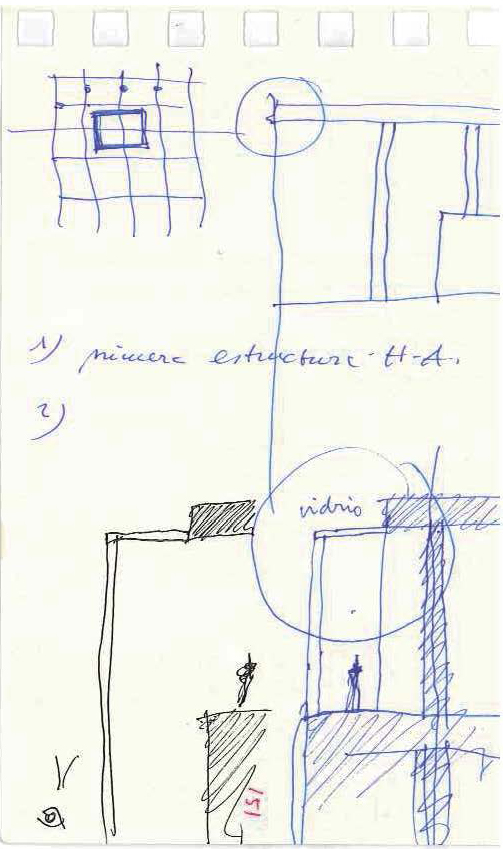 1) primera estructura H-A.
2)
vidrio
151